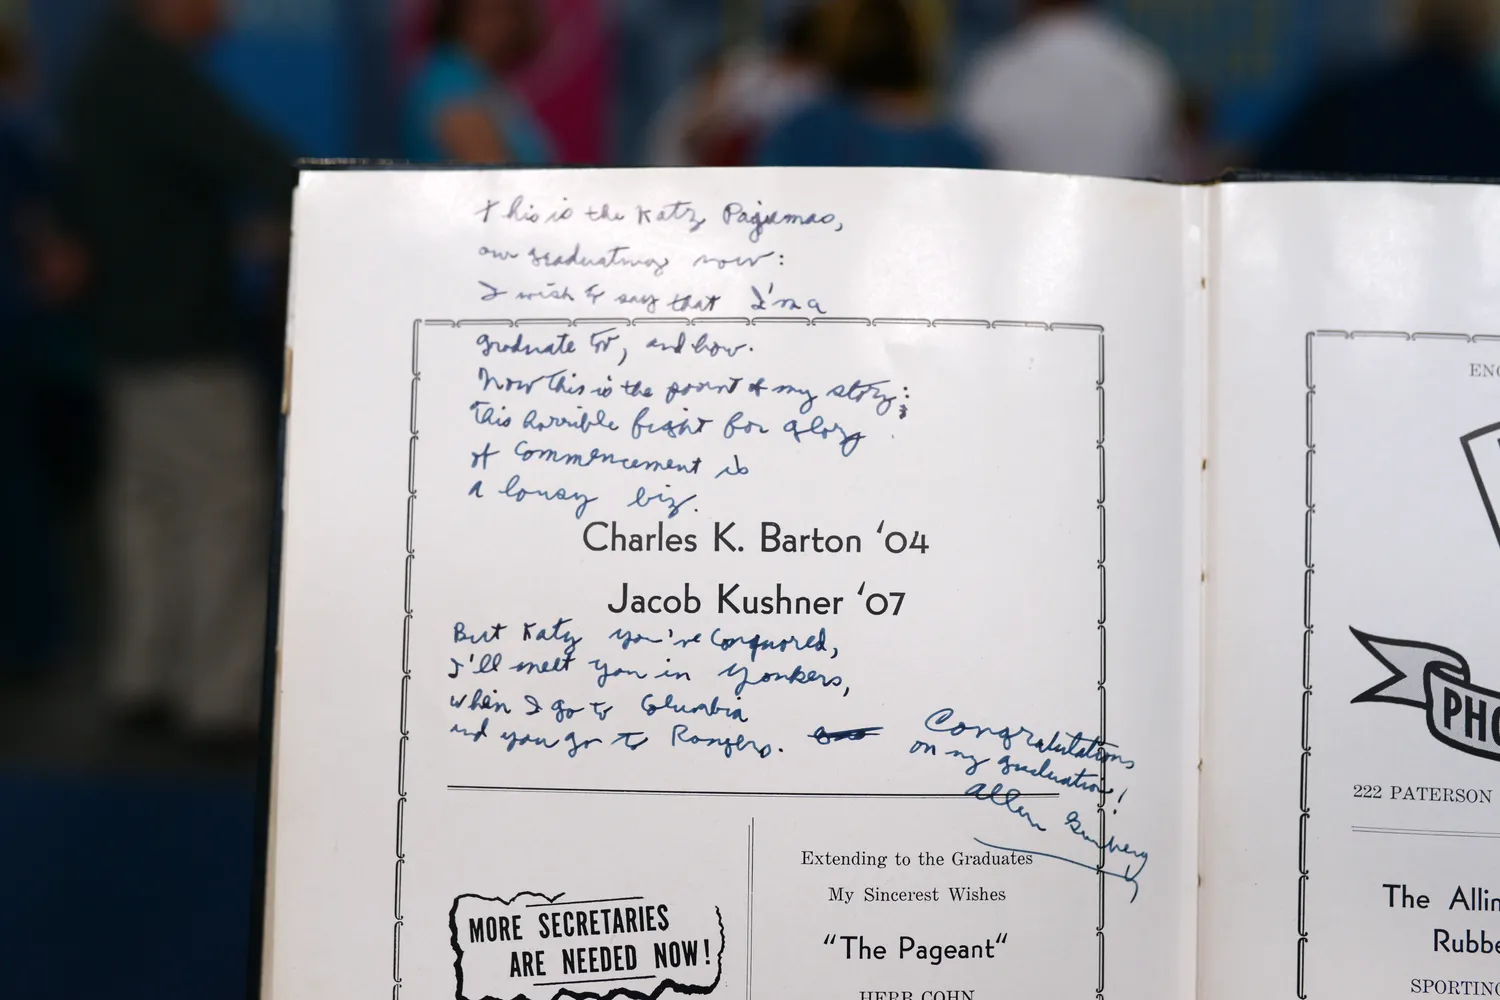 This is the Katz Pajamas,
our graduating now:
I wish to say that I'm a
graduate to, and how.
Now this is the point of my story;
this horrible fight for glory
of Commencement is
a lousy biz.
Charles K. Barton '04
Jacob Kushner '07
But Katy you've Conquored,
I'll meet you in Yonkers,
when I go to Columbia
and you go to Rongers.
Congratulations
on my graduation!
Allen Ginsberg
MORE SECRETARIES
ARE NEEDED NOW!
Extending to the Graduates
My Sincerest Wishes
"The Pageant"
HERR COHN
PHO
222 PATERSON
The
Rubbe
SPORTING